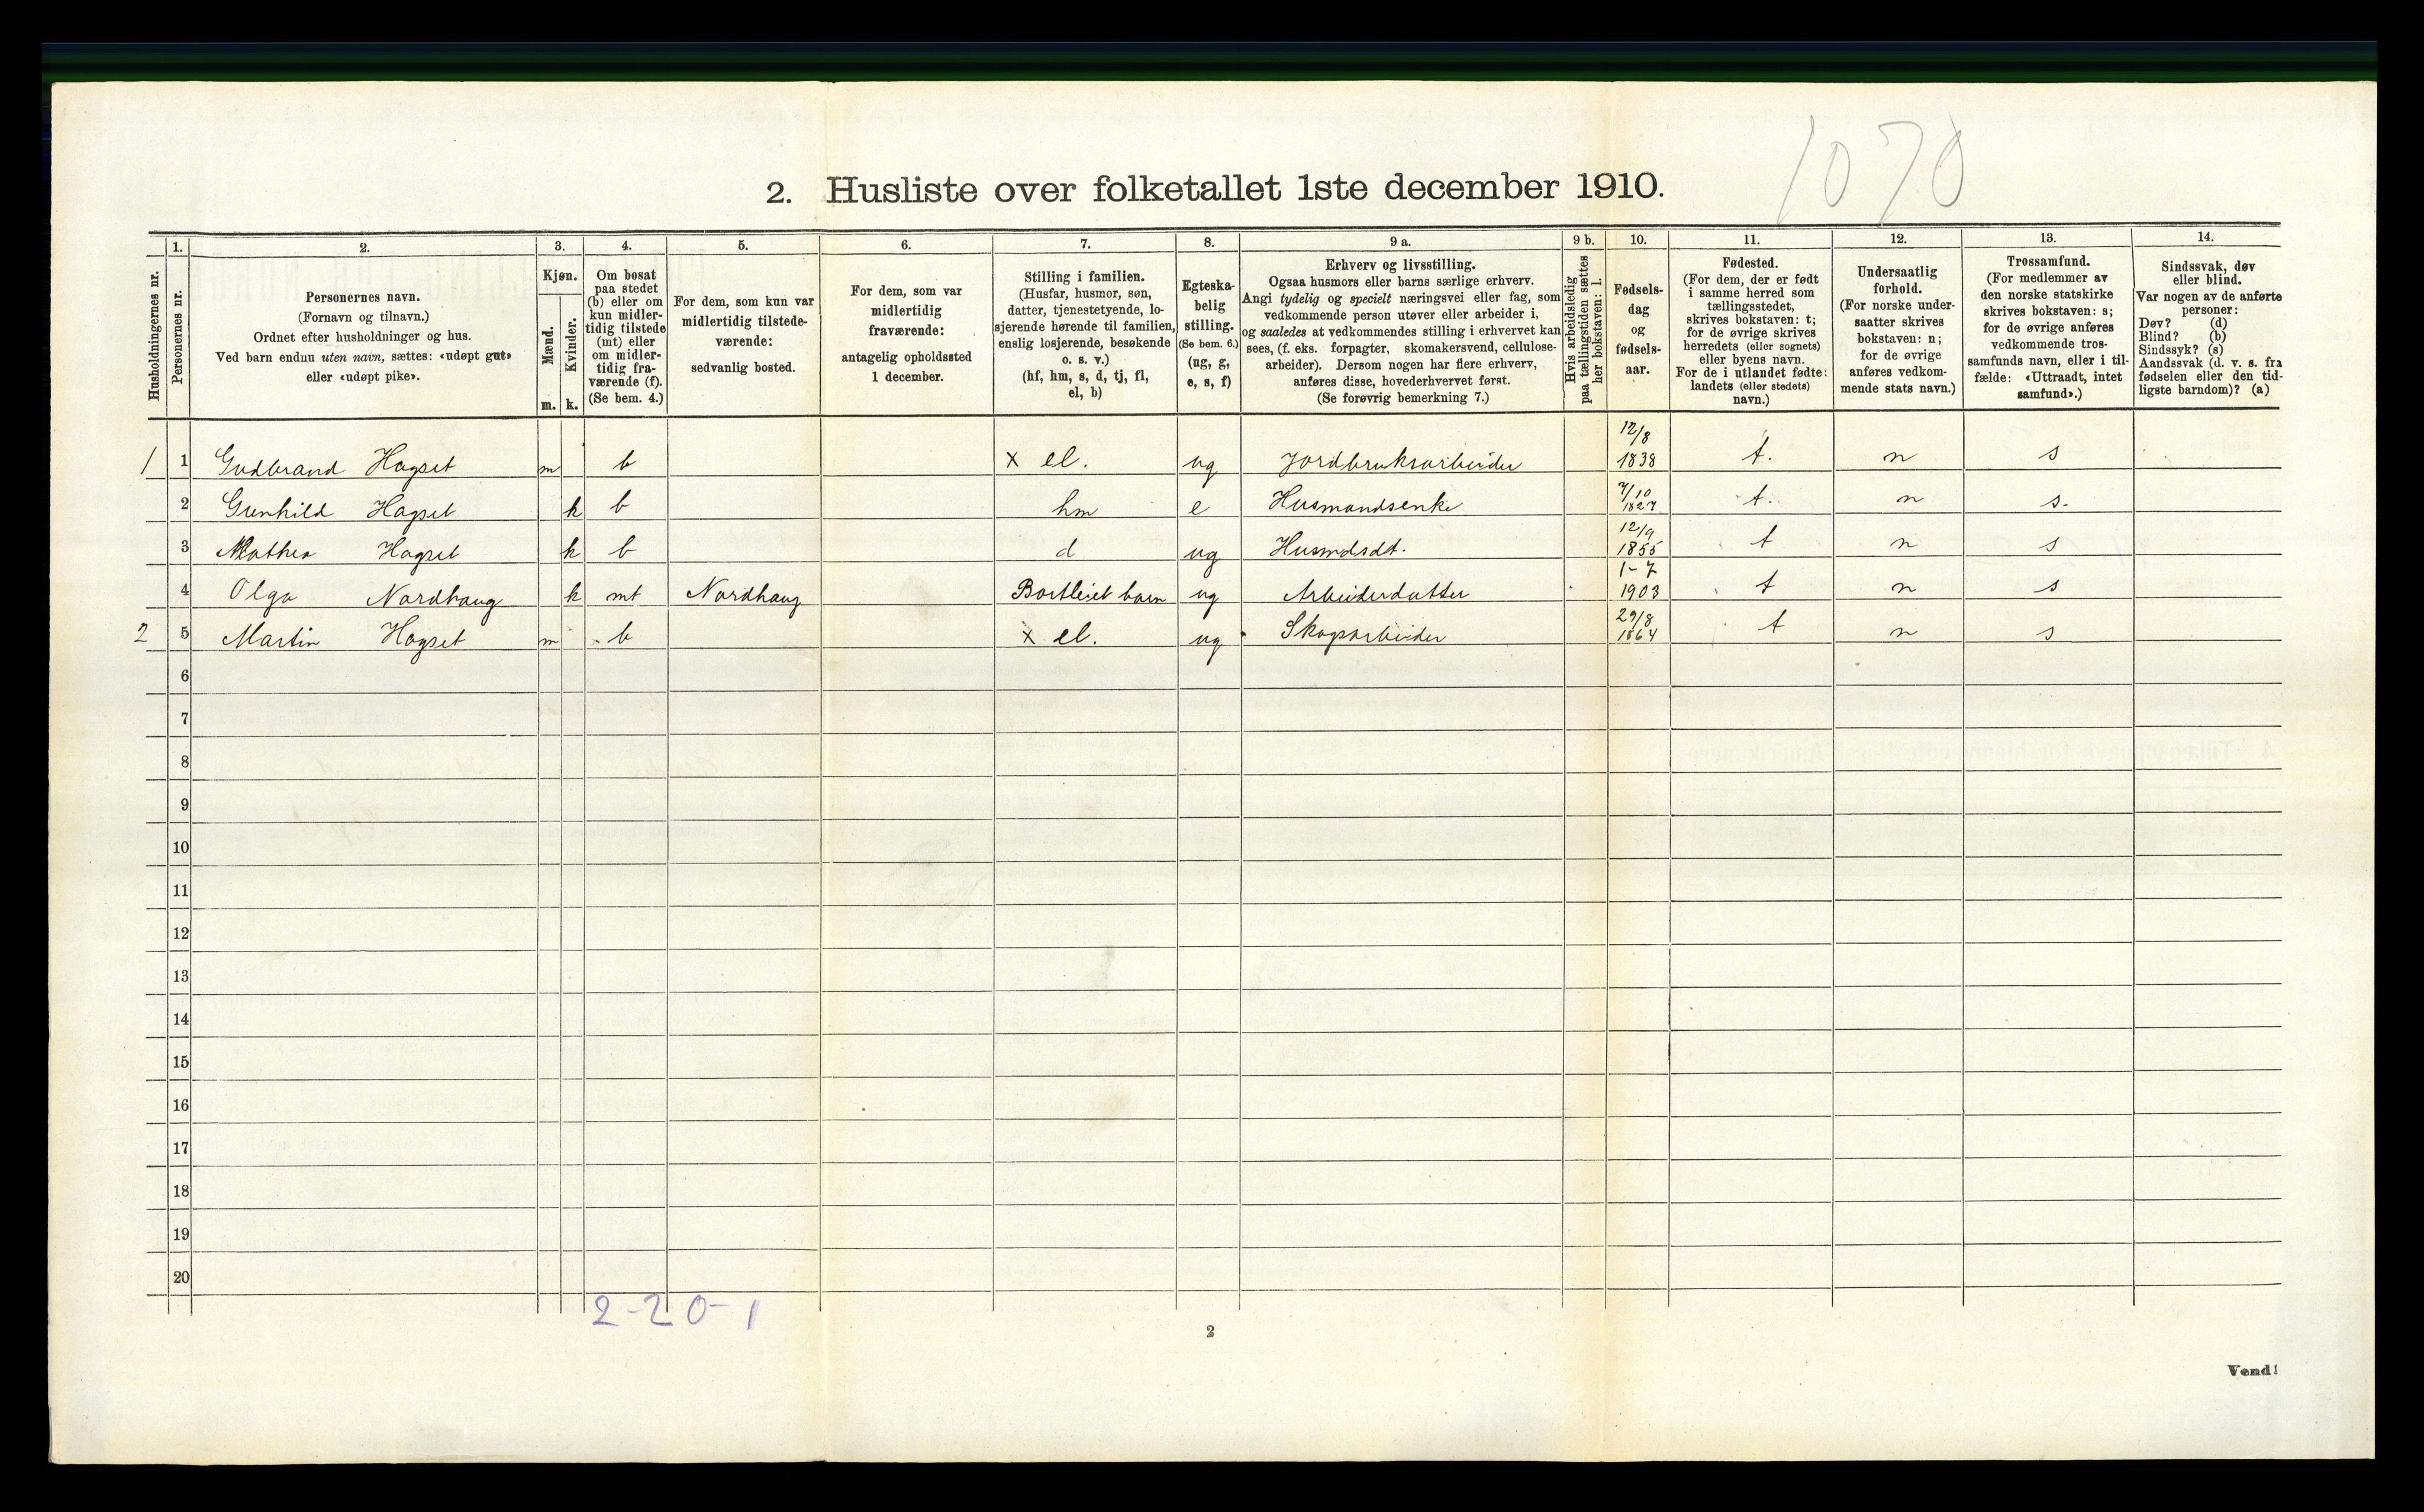 1070
2. Husliste over folketallet 1ste december 1910.
Husholdningernes nr.
1. Personernes nr.
2. Personernes navn.
(Fornavn og tilnavn.)
Ordnet efter husholdninger og hus.
Ved barn endnu uten navn, sættes: «udøpt gut»
eller «udøpt pike».
3. Kjøn.
Mænd. m.
Kvinder. k.
4. Om bosat
paa stedet
(b) eller om
kun midler-
tidig tilstede
(mt) eller
om midler-
tidig fra-
værende (f).
(Se bem. 4.)
5. For dem, som kun var
midlertidig tilstede-
værende:
sedvanlig bosted.
6. For dem, som var
midlertidig
fraværende:
antagelig opholdssted
1 december.
7. Stilling i familien.
(Husfar, husmor, søn,
datter, tjenestetyende, lo-
sjerende hørende til familien,
enslig losjerende, besøkende
o. s. v.)
(hf, hm, s, d, tj, fl,
el, b)
8. Egteska-
belig
stilling.
(Se bem. 6.)
(ug, g,
e, s, f)
9 a. Erhverv og livsstilling.
Ogsaa husmors eller barns særlige erhverv.
Angi tydelig og specielt næringsvei eller fag, som
vedkommende person utøver eller arbeider i,
og saaledes at vedkommendes stilling i erhvervet kan
sees, (f. eks. forpagter, skomakersvend, cellulose-
arbeider). Dersom nogen har flere erhverv,
anføres disse, hovederhvervet først.
(Se forøvrig bemerkning 7.)
9 b. Hvis arbeidsledig
paa tællingstiden sættes
her bokstaven: l.
10. Fødsels-
dag
og
fødsels-
aar.
11. Fødested.
(For dem, der er født
i samme herred som
tællingsstedet,
skrives bokstaven: t;
for de øvrige skrives
herredets (eller sognets)
eller byens navn.
For de i utlandet fødte:
landets (eller stedets)
navn.)
12. Undersaatlig
forhold.
(For norske under-
saatter skrives
bokstaven: n;
for de øvrige
anføres vedkom-
mende stats navn.)
13. Trossamfund.
(For medlemmer av
den norske statskirke
skrives bokstaven: s;
for de øvrige anføres
vedkommende tros-
samfunds navn, eller i til-
fælde: «Uttraadt, intet
samfund».)
14. Sindssvak, døv
eller blind.
Var nogen av de anførte
personer:
Døv? (d)
Blind? (b)
Sindssyk? (s)
Aandssvak (d. v. s. fra
fødselen eller den tid-
ligste barndom)? (a)
1 1 Gudbrand Hagset m b x el. ug Jordbruksarbeider 12/8 1838 t. n s
2 Gunhild Hagset k b hm e Husmandsenke 7/10 1827 t. n s.
3 Mathea Hagset k b d ug Husmdsdt. 12/9 1855 t n s
4 Olga Nordhaug k mt Nordhaug Bortleiet barn ug Arbeiderdatter 1-7 1903 t n s
2 5 Martin Hagset m b x el. ug Skogsarbeider 29/8 1864 t n s
6
7
8
9
10
11
12
13
14
15
16
17
18
19
20
2-20-1
2
Vend!